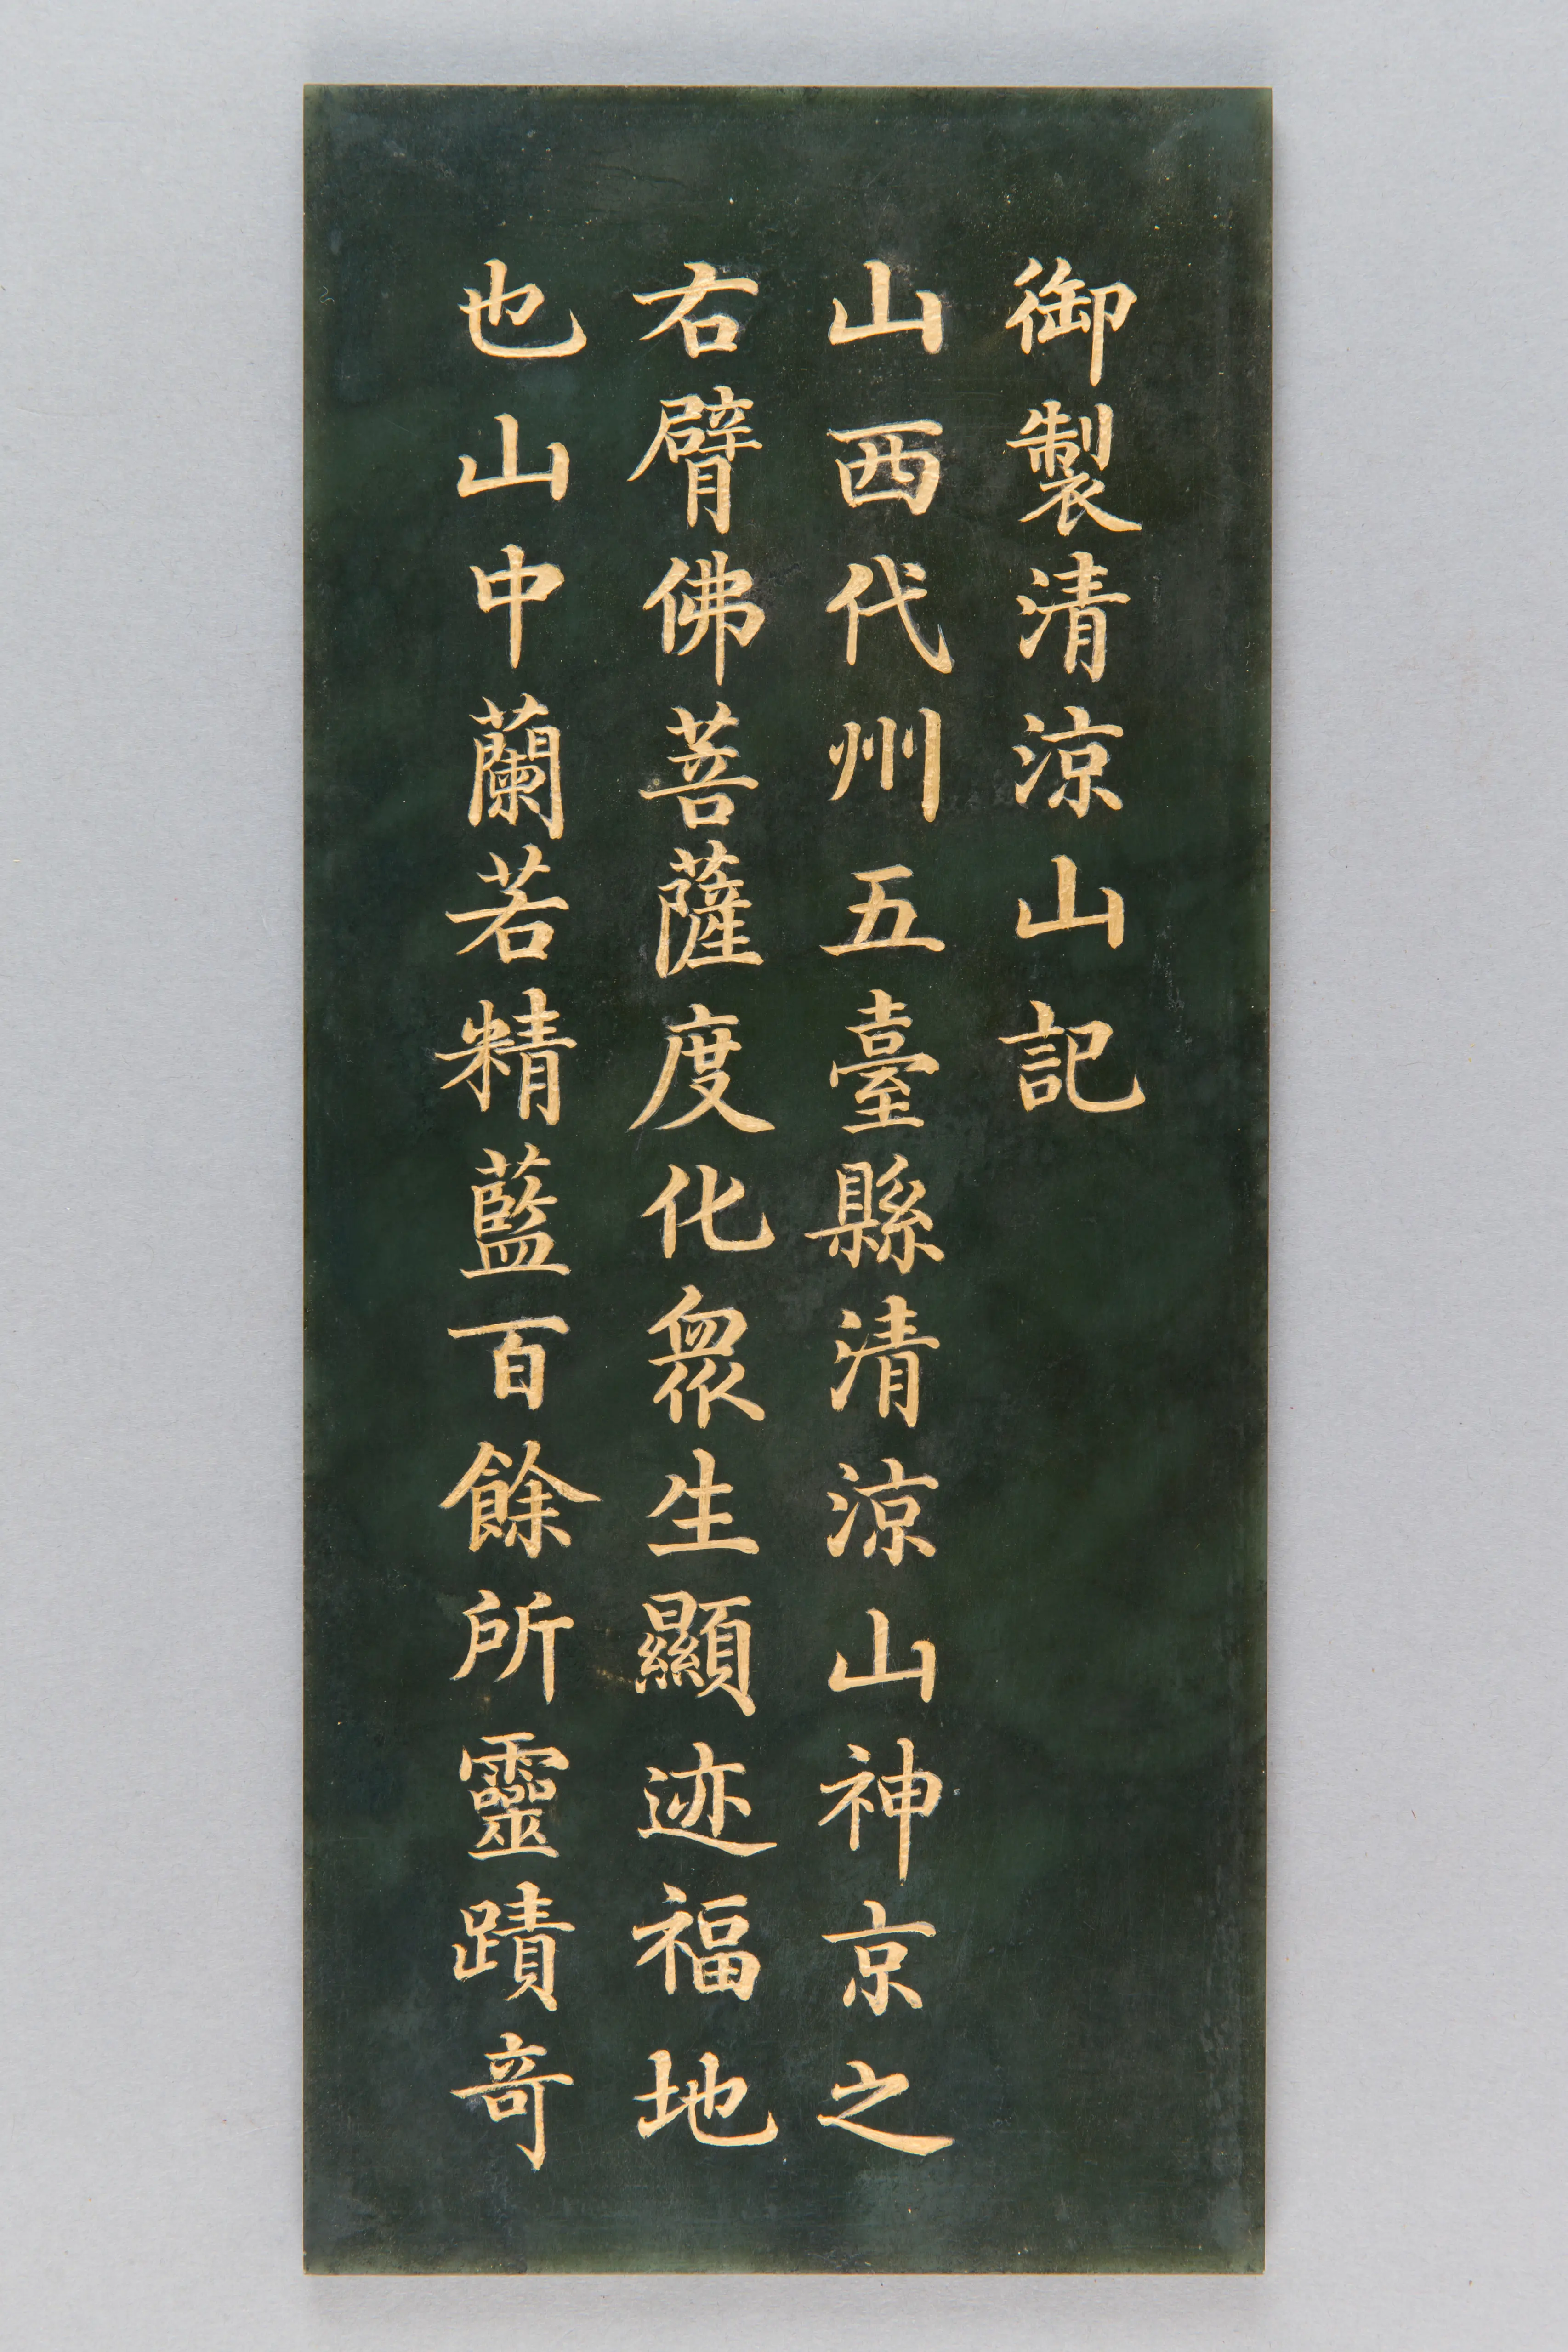 御製清涼山記
山西代州五臺縣清涼山神京之
右臂佛菩薩度化眾生顯迹福地
也山中蘭若精藍百餘所靈蹟竒